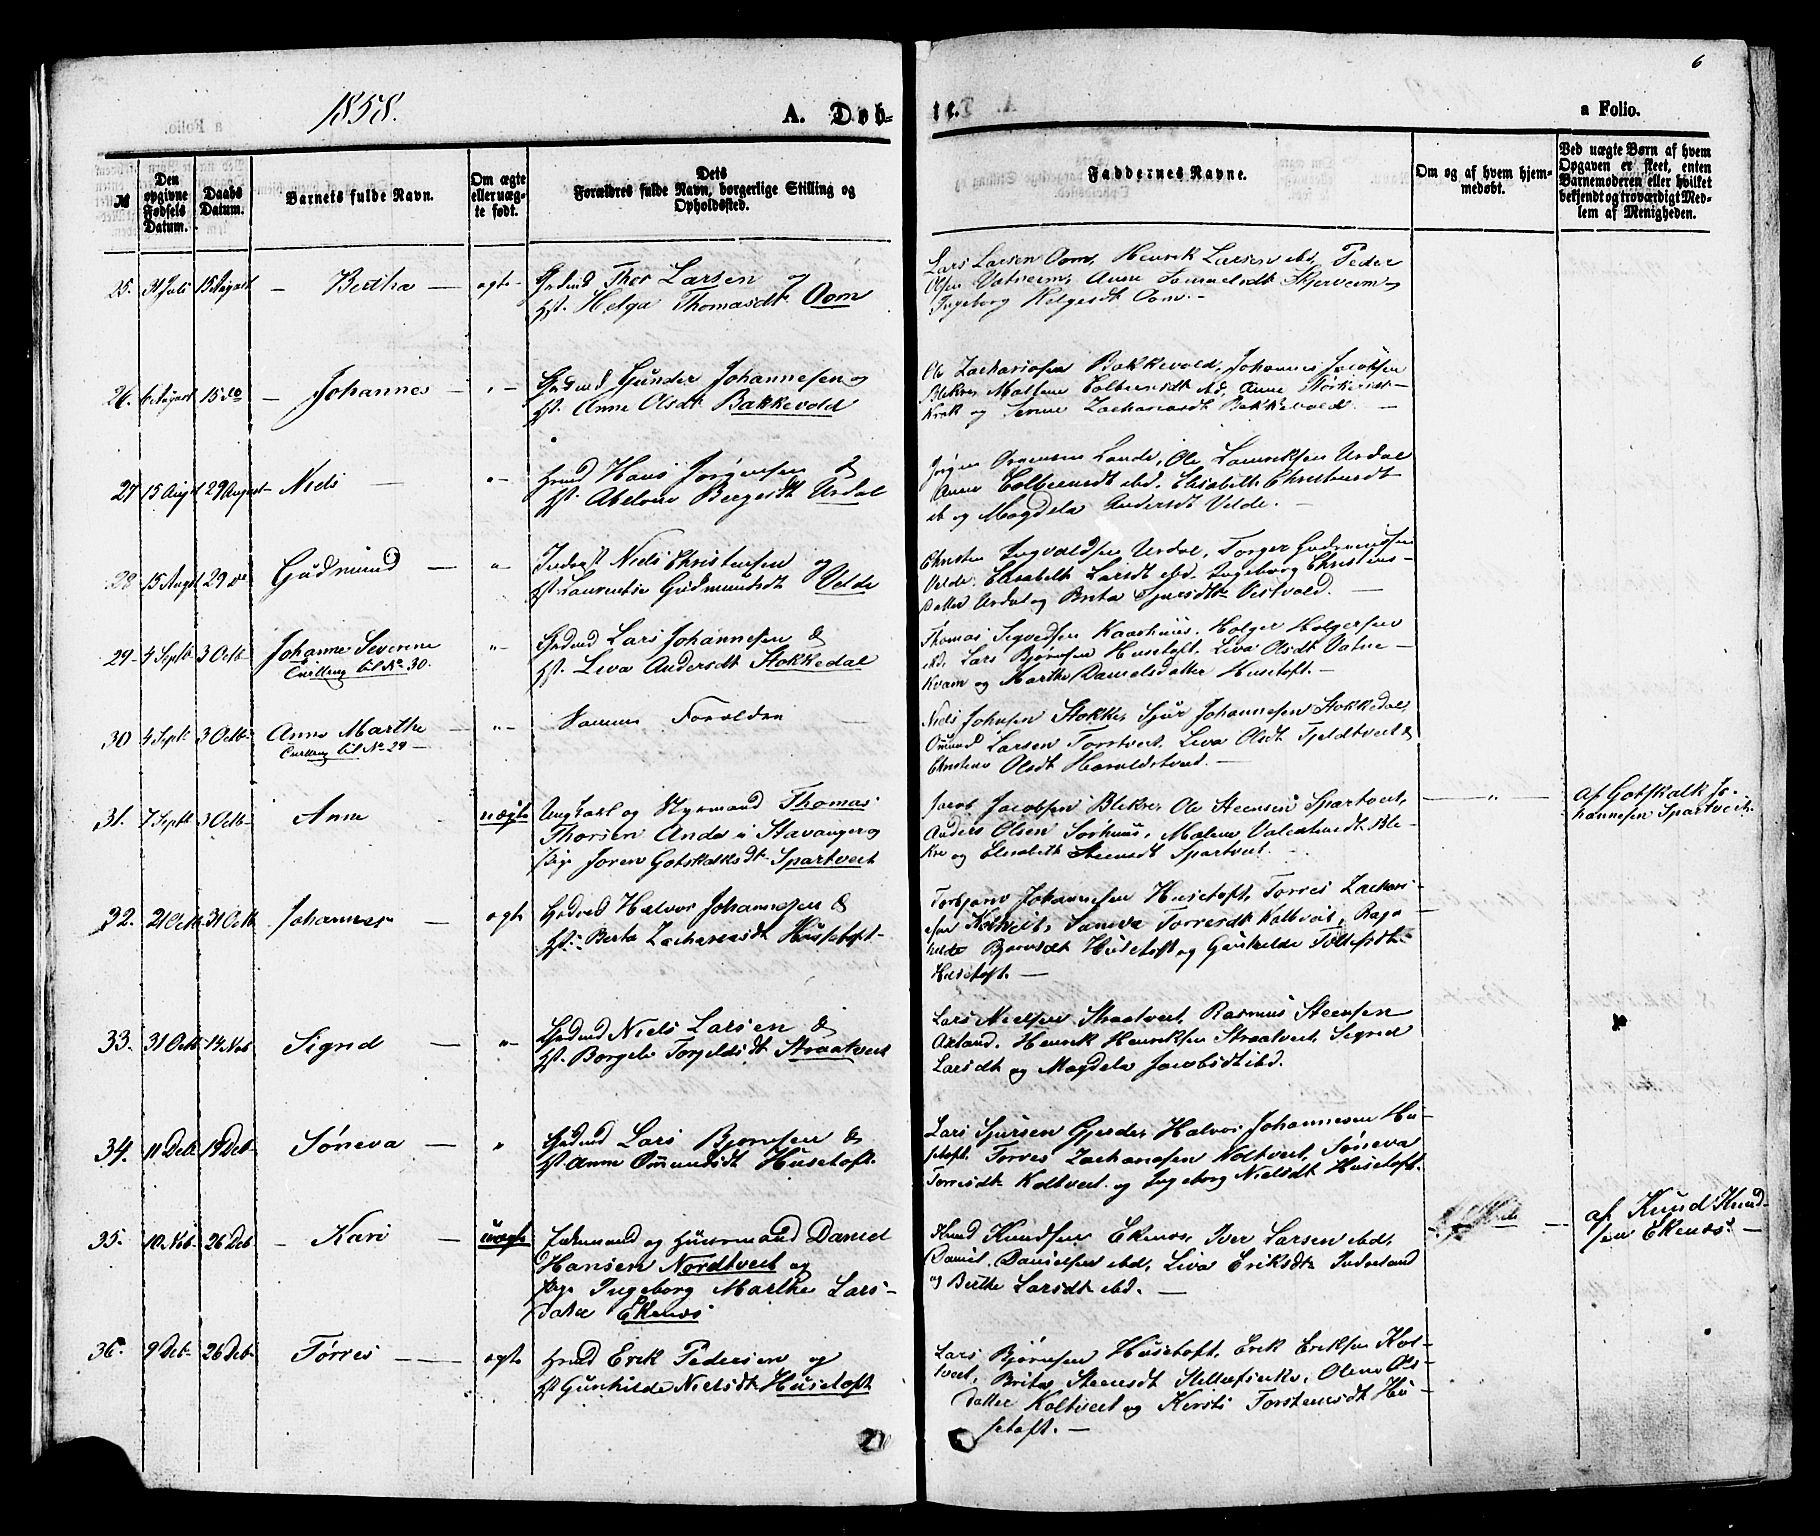 6
1858.
A. Døb-
te.
a Folio.
№
Den opgivne Fødsels Datum.
Daabs Datum.
Barnets fulde Navn.
Om ægte eller uægte født.
Dets Forældres fulde Navn, borgerlige Stilling og Opholdssted.
Faddernes Navne.
Om og af hvem hjemmedøbt.
Ved uægte Børn af hvem Opgaven er skeet, enten Barnemoderen eller hvilket bekjendt og troværdigt Medlem af Menigheden.
25. 31 Juli 15 August - Bertha - ægte -
Thor Larsen og
Hst. Helga Thomasdt Oom
Lars Larsen Oom, Henrik Larsen ebd, Peder
Olsen Vatneim, Anne Skjerveim og
Ingeborg Helgesdt Oom. -
26. 6 August 15 do - Johannes - " -
Gunder Johannesen og
Hst. Anne Olsdt Bakkevold
Ole Zachariasen Bakkevold, Johannes Jacobsen
Blekre, Malene Tolleensdt ebd, Anne
Krak og Serine Zachariasdt Bakkevold. -
27 15 Augst 29 August - Niels - " -
Hmd Hans Jørgensen &
Hst. Abelone Bergesdt Urdal
Jørgen Lande, Ole Lauritsen Urdal
Anne ebd, Elisabeth Christensdt
eb og Magdela Andersdt Velde. -
28 15 Augst 29 do Gudmund - "
Niels Christensen og
Hst. Laurentse Gudmundsdt Velde
Christen Ingvaldsen Urdal, Torger Gudmundsen
Velde, Elisabeth Larsdt ebd. Ingeborg Christens-
datter Urdal og Brita Sjursdtr Vestvold. -
29 - 4 Septb 3 Octb - Johanne Severine " -
Tvilling til No 30.
Lars Johannesen &
Hst. Liva Andersdt Stokkedal
Thomas Sigvedsen Kaarhuus, Holger Holgersen
ebd. Lars Bjørnsen Husetoft, Liva Olsdt Vatne -
Kvam og Marthe Danielsdatter Husetoft. -
30 4 Septb 3 Octb - Anne Marthe - " -
Tvilling til No 29 -
Samme Forældre
Niels Johnsen Stokke, Sjur Johannesen Stokkedal,
Omund Larsen Torstvet, Liva Olsdt Fjeldtvet &
Christene Olsdt Haraldstved. -
31. 7 Septb 3 Octb - Anne uægte
Ungkarl og Styrmand Thomas
Thorsen Anda i Stavanger og
Pige Joren Gotskalksdt Spartveit
Jacob Jacobsen Blekre, Ole Steensen Spartveit,
Anders Olsen Sørhuus, Malene Valentinsdt Ble-
kre og Elisabeth Steensdt Spartveit. -
— " —
af Gotskalk Jo-
hannesen Spartveit.
32. 21 Octb 31 Octb Johannes - ægte
Halvor Johannesen &
Hst. Berta Zachariasdt Husetoft -
Torbjørn Johannesen Husetoft, Torres Zachari-
asen Koltveit, Søneva Torresdt Koltveit, Ragn-
hilde Bjørnsdt Husetoft og Gunhilde
Husetoft. -
33. 31 Octb 14 Nov Sigrid - " -
Niels Larsen &
Hst. Borgele Torjeldsdt Straatveit
Lars Nielsen Straatveit, Rasmus Steensen
Axland, Henrik Henriksen Straatveit, Sigrid
Larsdt og Magdela Jacobsdt ibd.
34. 11 Deb 19 Deb - Søneva - "
Lars Bjørnsen &
Hst. Anne Omundsdt Husetoft.
Lars Sjursen Gjerde, Halvor Johannesen Hu-
setoft, Torres Zachariasen Koltveit, Søneva
Torresdt Koltveit og Ingeborg Nielsdt Husetoft.
35. 10 Nov - 26 Deb - Kari - uægte
og Huusmand Daniel
Hansen Nordtveit og
Pige Ingeborg Marthe Lars-
datter Ekenes
Knud Knudsen Ekenes, Iver Larsen ebd,
Daniel Danielsen ebd, Liva Eriksdt
og Berthe Larsdt ebd. -
af Knud Knud-
sen Ekenes. -
36. 9 Deb - 26 Deb - Tørres - - ægte
Hmd Erik Pedersen og
Hst Gunhilde Nielsdt Husetoft
Lars Bjørnsen Husetoft, Erik Eriksen Kol-
tveit, Brita Steensdt Olene Ols-
datter Koltveit og Kirsti Torstensdt Hu-
setoft. -